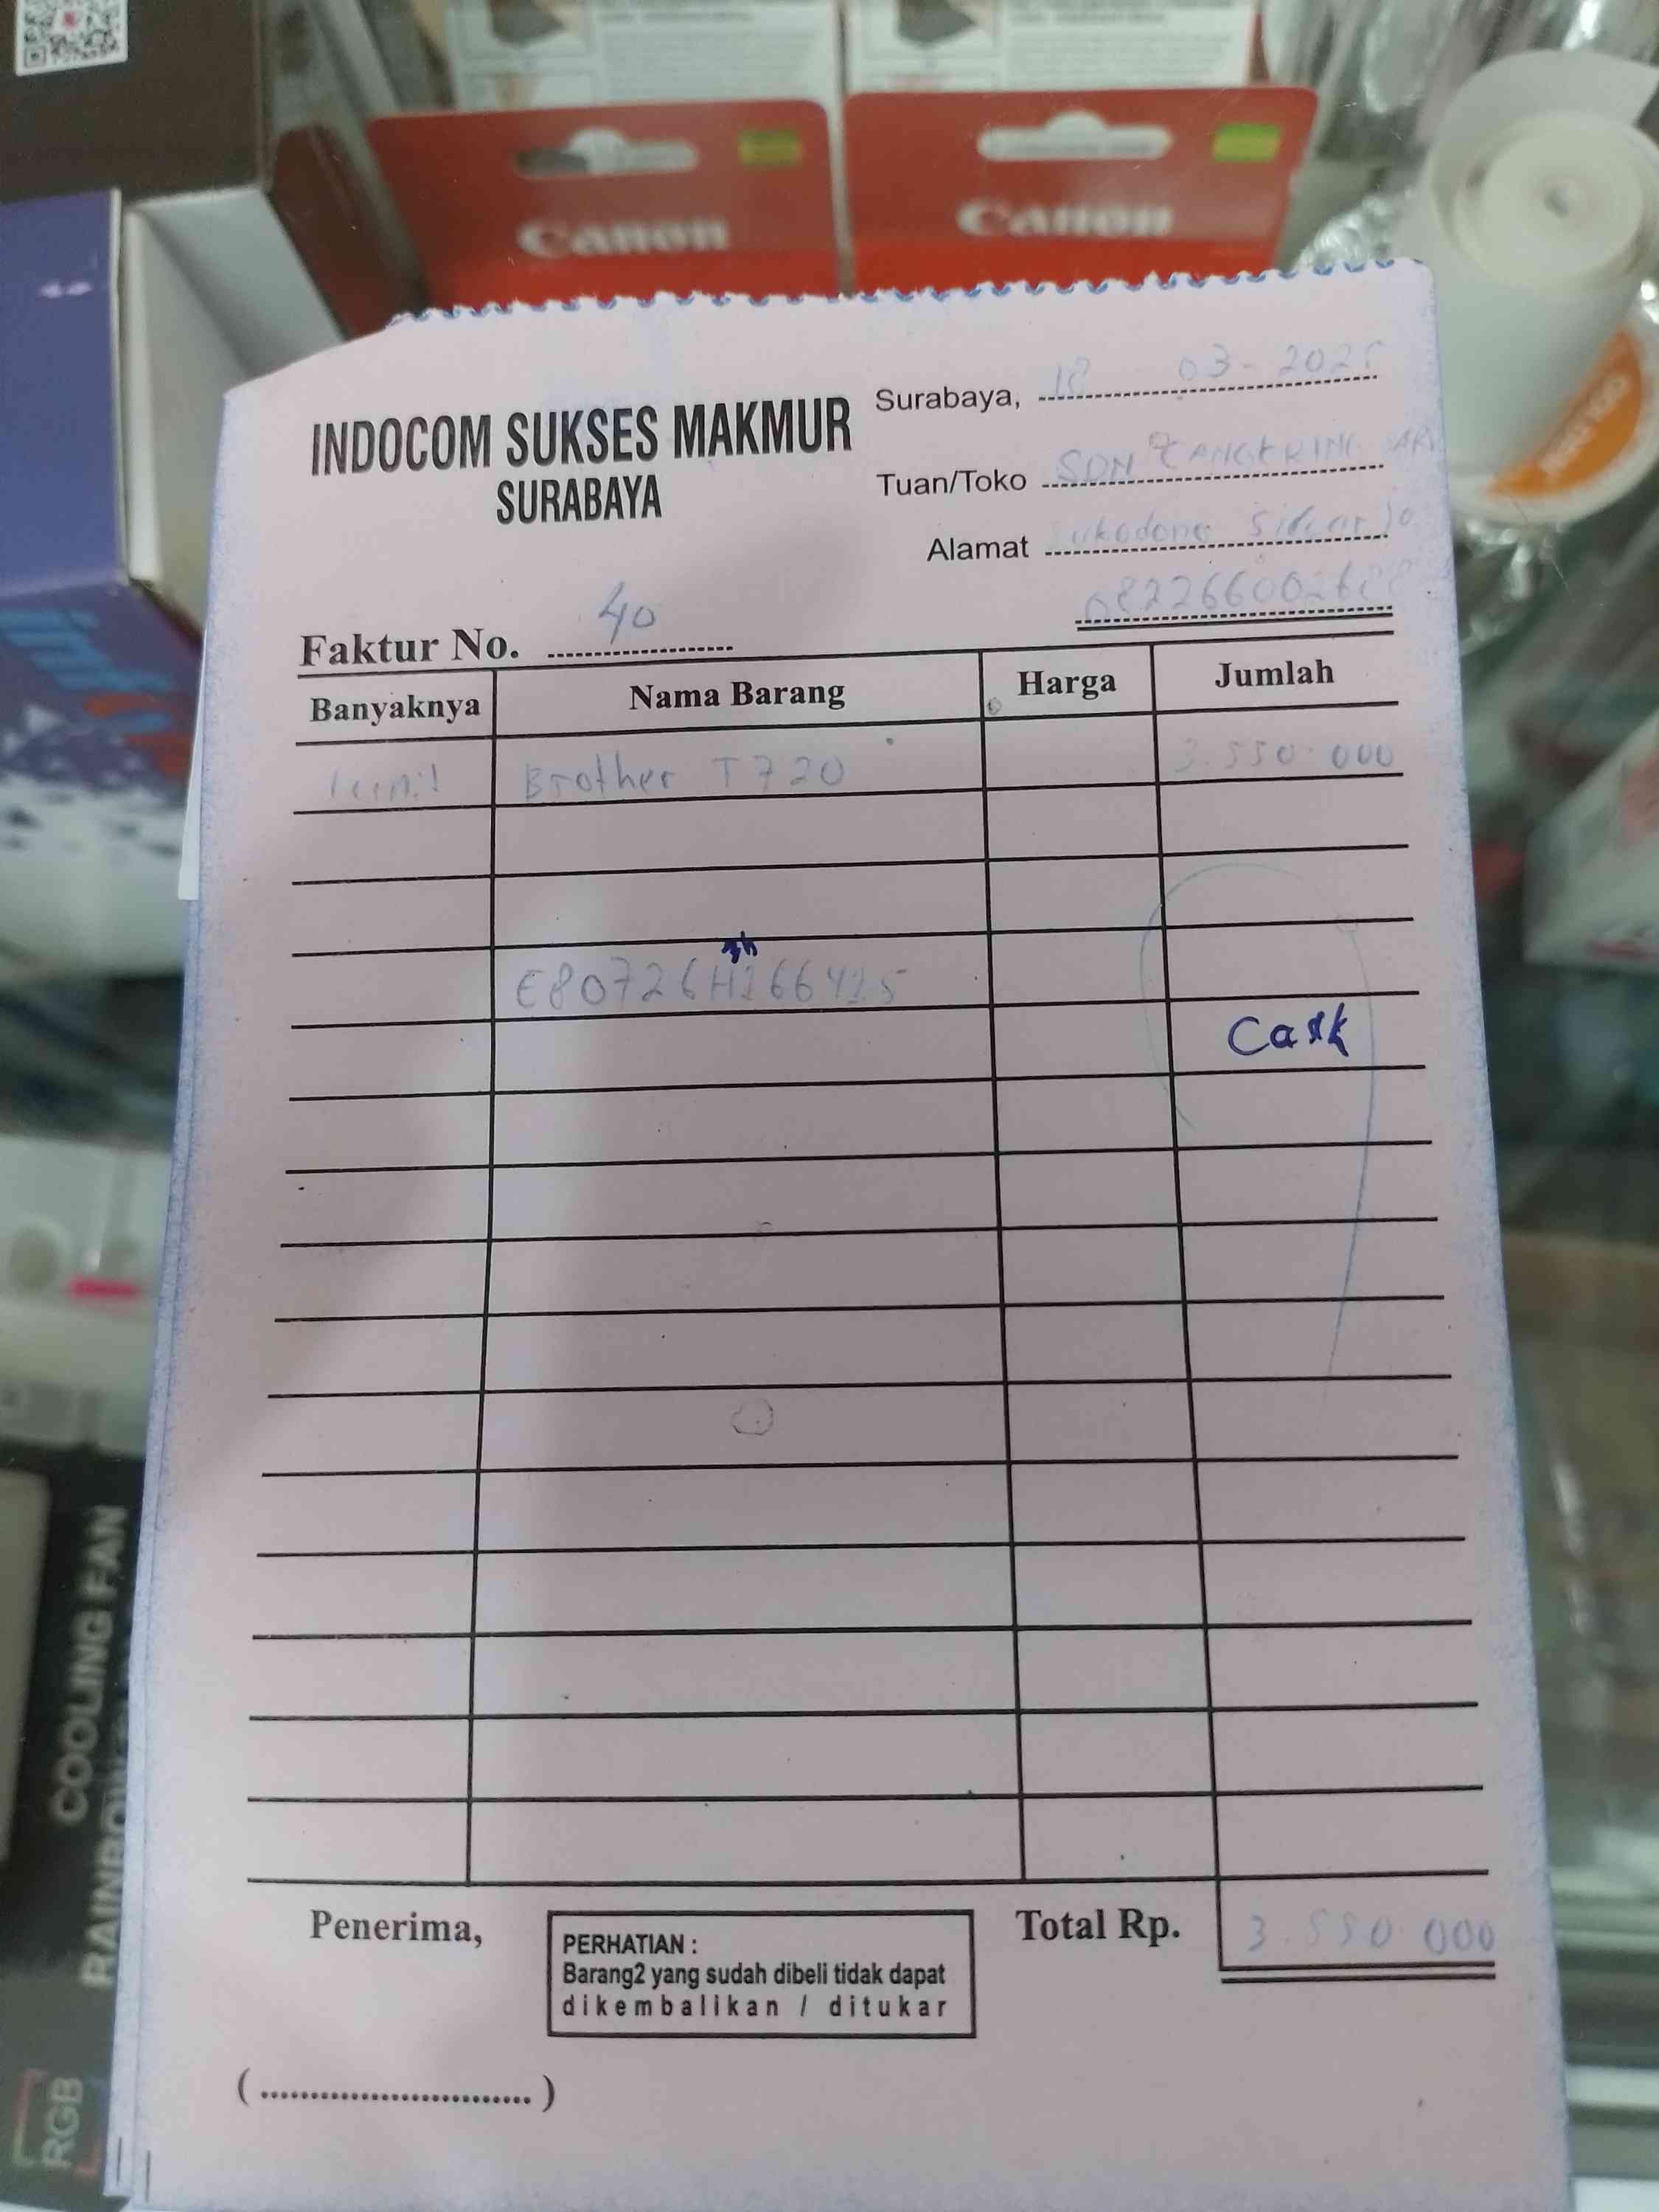 Canon
Canon
INDOCOM SUKSES MAKMUR
SURABAYA
Surabaya, 18 03-2025
Tuan/Toko SDN
Alamat Sukodono Sidoarjo
Faktur No. 40
Banyaknya Nama Barang Harga Jumlah
1 unit Brother T720 3.550.000
E80726H266425
Cash
Penerima,
PERHATIAN :
Barang2 yang sudah dibeli tidak dapat
dikembalikan / ditukar
Total Rp. 3.550.000
(..............................)
COOLING FAN
RGB